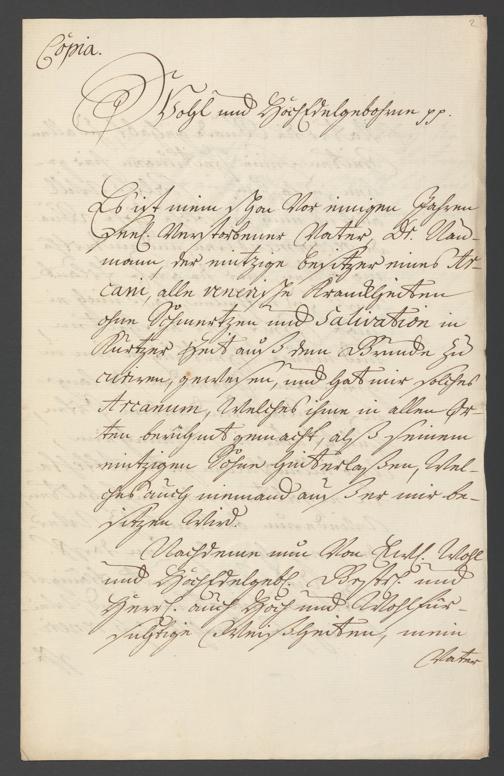 2
Copia.
Wohl und HochEdelgebohrne pp.
Es ist mein schon vor einigen Jahren
Seel. verstorbener Vater, Dr. Nau-
mann, der eintzige besitzer eines Ar-
cani, alle venerische Kranckheiten
ohne Schmertzen und Salivation in
Kurtzer Zeit auß dem Grunde zu
curiren, gewesen, und hat mir solches
Arcanum, Welches ihme in allen Or-
ten berühmt gemacht, alß seinem
eintzigen Sohne hinterlaßen, Wel-
ches auch niemand außer mir be-
sitzen wird.
Nachdeme nun von Wohl
und HochEdelgeb. und
Herrl. auch Hoch und Wohlfür-
sichtige Weißheiten, mein
Vater